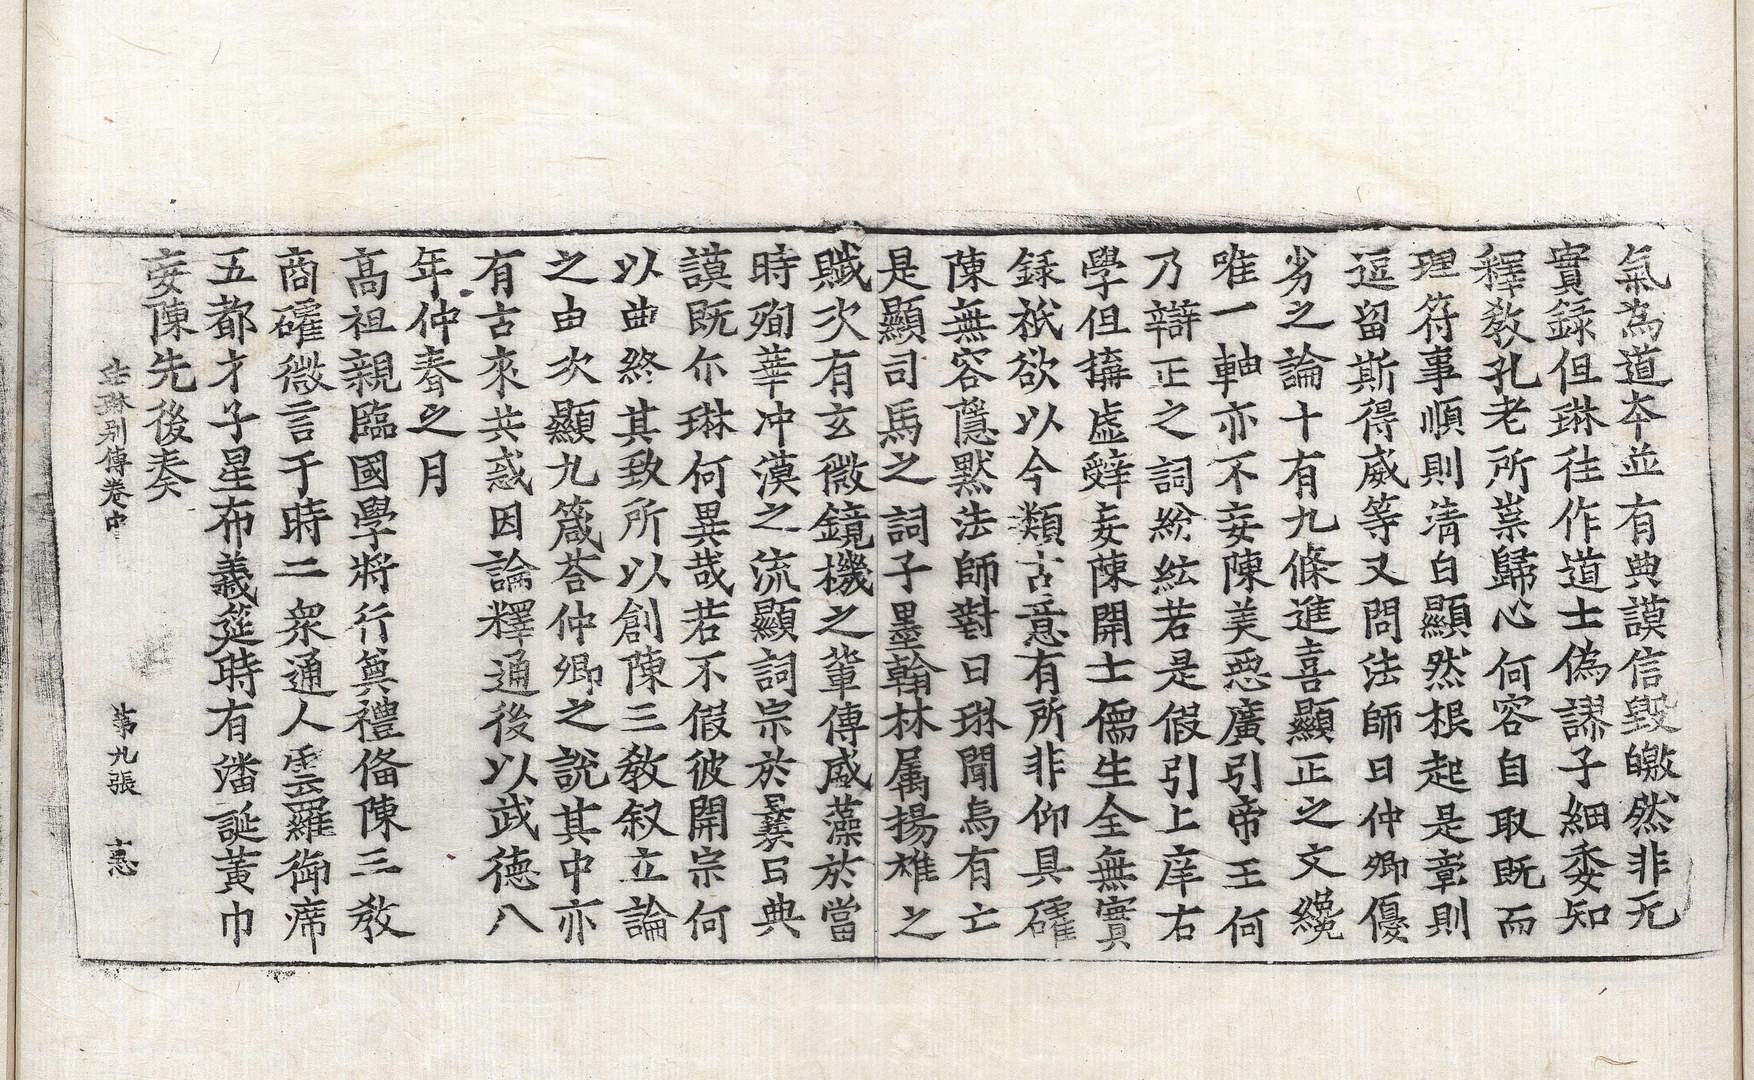 氣為道夲並有典謨信毀皦然非无
實録但琳往作道士偽謬子細委知
釋教孔老所業歸心何容自取既而
理符事順則清白顯然根起是彰則
逗留斯得威等又問法師曰仲卿優
劣之論十有九條進喜顯正之文纔
唯一軸亦不妄陳美惡廣引帝王何
乃辯正之詞紛紜若是假引上庠右
學但搆虛辤妄陳開士儒生全無實
録祇欲以今類古意有所非仰具礭
陳無容隱默法師對曰琳聞烏有亡
是顯司馬之詞子墨翰林属揚雄之
賦次有玄微鏡機之輩傳盛藻於當
時殉華冲漠之流顯詞宗於曩日典
謨既尒琳何異哉若不假彼開宗何
以曲終其致所以創陳三教叙立論
之由次顯九箴荅仲卿之說其中亦
有古來共惑因論釋通後以武德八
年仲春之月
髙祖親臨國學將行奠禮俻陳三教
商礭微言于時二衆通人雲羅御席
五都才子星布義筵時有潘誕黃巾
妄陳先後奏
法琳别傳卷中　第九張　惡